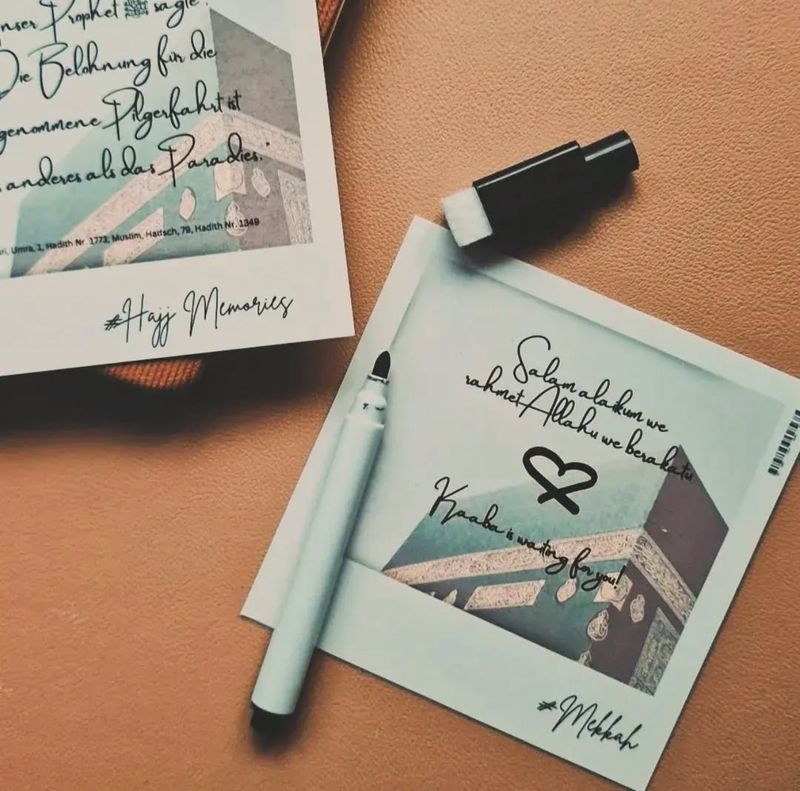 unser Prophet ﷺ sagte:
Die Belohnung für die
genommene Pilgerfahrt ist
anderes als das Paradies."
Umra, 1, Hadith Nr. 1773; Muslim, Hadsch, 79, Hadith Nr. 1349
#Hajj Memories
Salam alaikum we
rahmet Allahu we berakatu
Kaaba is waiting for you!
#Mekkah